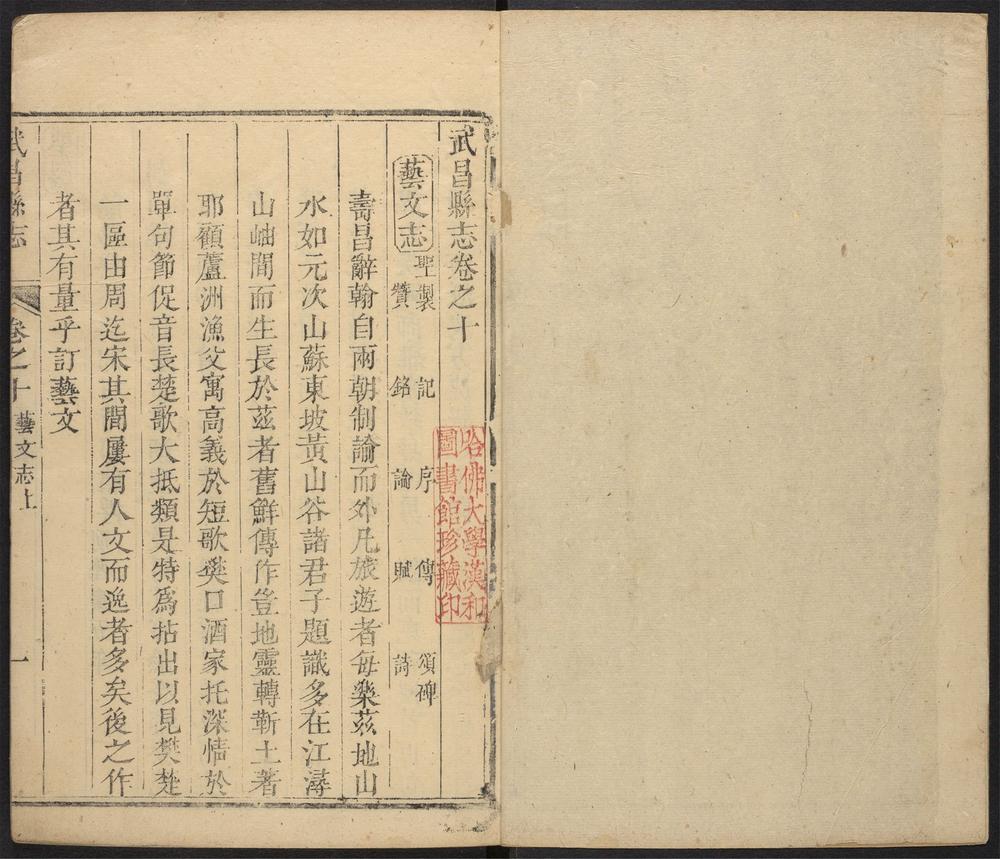 武昌縣志卷之十
藝文志
聖製 記 序 傳 頌 碑
贊 銘 論 賦 詩
壽昌辭翰自兩朝制諭而外凡旅遊者每樂茲地山
水如元次山蘇東坡黃山谷諸君子題識多在江潯
山岫間而生長於茲者舊鮮傳作豈地靈轉靳土著
耶顧蘆洲漁父寓高義於短歌樊口酒家托深情於
單句節促音長楚歌大抵類是特爲拈出以見樊楚
一區由周迄宋其間屢有人文而逸者多矣後之作
者其有量乎訂藝文
武昌縣志
卷之十
藝文志上
一
哈佛大學漢和
圖書館珍藏印